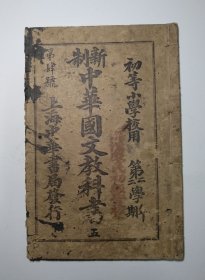 初等小學校用 第二學期
新制中華國文教科書 五
上海中華書局發行